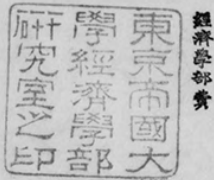 經濟學部費
東京帝國大
學經濟學部
研究室之印